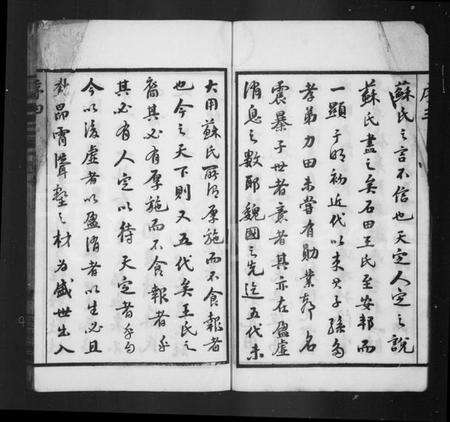 蘇氏之言不信也天定人定之說
蘇氏盡之矣石田王氏至安邦而
一顯于明初近代以來其子孫多
孝弟力田未嘗有勛業都名
震暴于世者意者其亦在盈虛
消息之數郎魏國之先迄五代未
大用蘇氏所謂厚施而不食報者
也今之天下則又五代矣王氏之
裔其必有厚施而不食報者乎
其必有人定以待天定者乎自
今以後虛者以盈消者以生必且
昂霄聳壑之材為盛世出入
序三